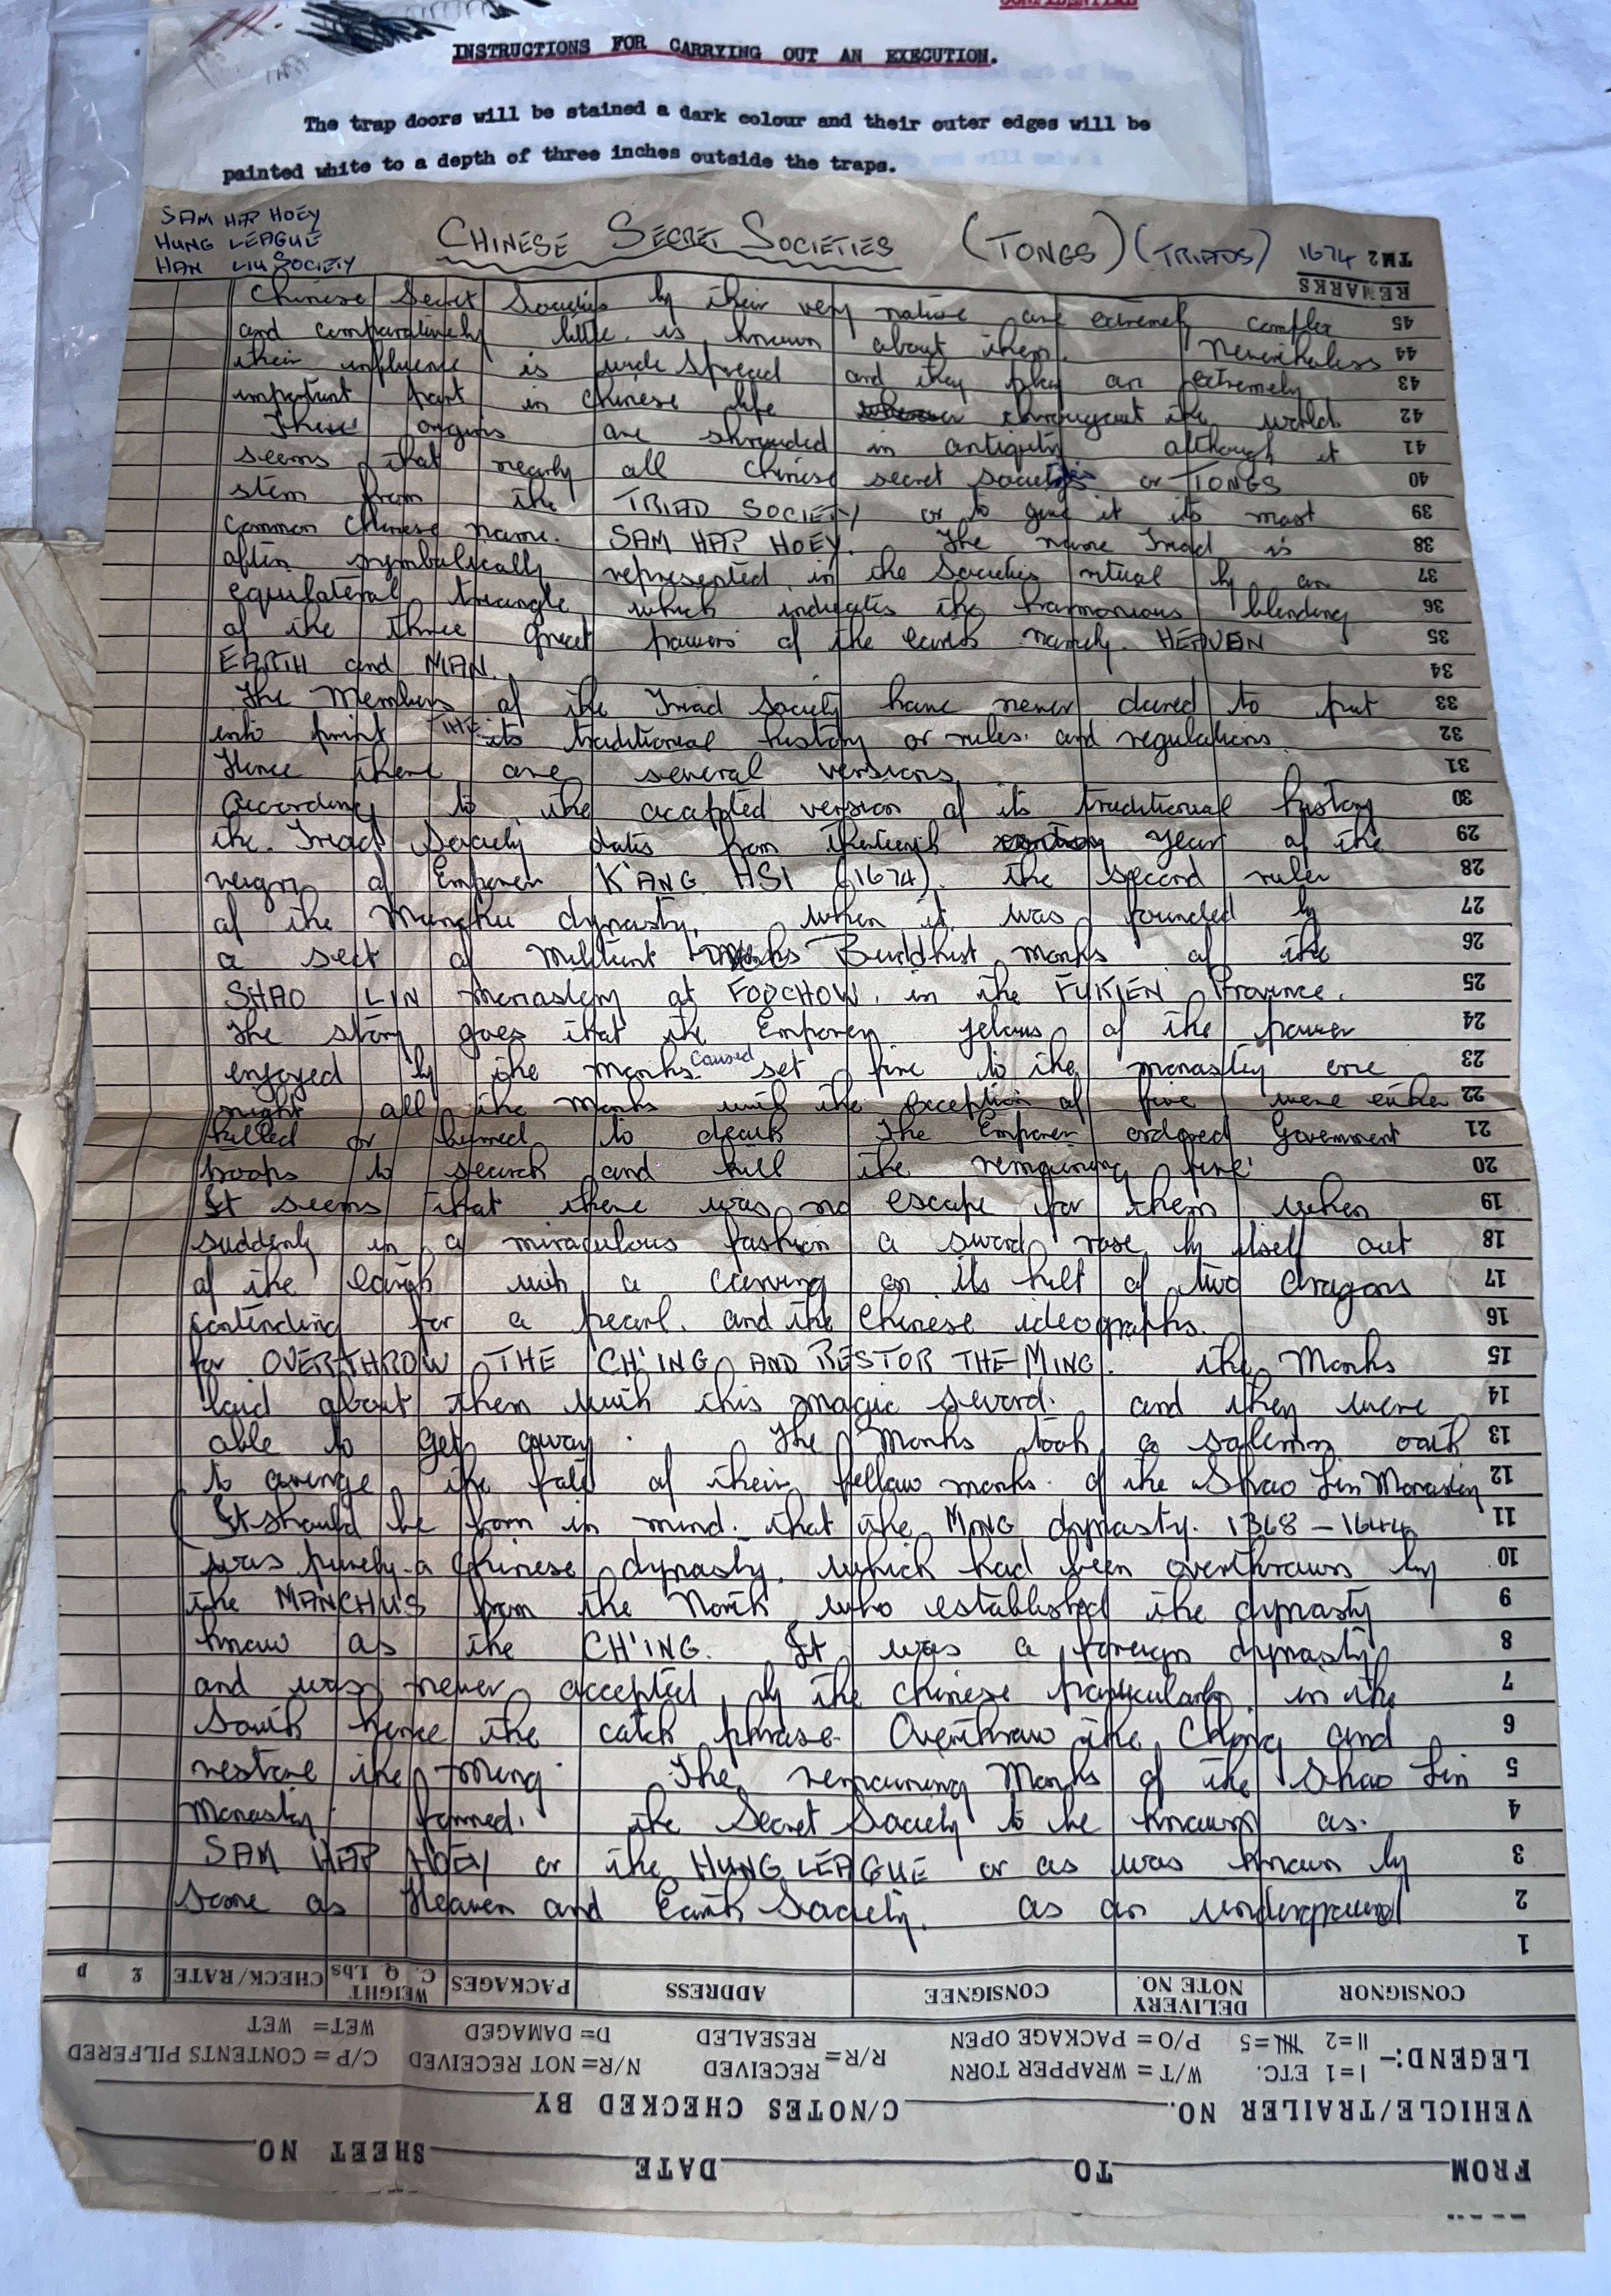 CONFIDENTIAL
INSTRUCTIONS FOR CARRYING OUT AN EXECUTION.
The trap doors will be stained a dark colour and their outer edges will be
painted white to a depth of three inches outside the traps.
SAM HAP HOEY
HUNG LEAGUE
HAN LIU SOCIETY
CHINESE SECRET SOCIETIES (TONGS) (TRIADS) 1674
TM2
REMARKS
Chinese Secret Societies by their very nature are extremely complex 45
and comparatively little is known about them. Nevertheless 44
their influence is wide spread and they play an extremely 43
important part in Chinese life througout the world 42
Their origins are shrouded in antiquity although it 41
seems that nearly all Chinese secret societies or TONGS 40
stem from the TRIAD SOCIETY or to give it its most 39
common Chinese name. SAM HAP HOEY. The name Triad is 38
often symbolically represented in the Societies ritual by an 37
equilateral triangle which indicates the harmonious blending 36
of the three great powers of the earth namely. HEAVEN 35
EARTH and MAN. 34
The Members of the Triad Society have never dared to put 33
into print THE its traditional history or rules. and regulations. 32
Hence there are several versions 31
According to the accepted version of its traditional history 30
the. Triad Society dates from thirteenth year of the 29
reign of Emperor K'ANG HSI (1674). the second ruler 28
of the Manchu dynasty, when it was founded by 27
a sect of militant Buddhist monks of the 26
SHAO LIN monastery at FOOCHOW. in the FUKIEN Province. 25
The story goes that the Emperor jelous of the power 24
enjoyed by the monks. caused set fire to the monastery one 23
night all the monks with the exception of five were either 22
killed or burned to death The Emperor ordered Government 21
troops to search and kill the remaining five 20
It seems that there was no escape for them when 19
suddenly in a miraculous fashion a sword rose by itself out 18
of the earth with a carving on its hilt of two dragons 17
contending for a pearl. and the Chinese ideographs. 16
for OVERTHROW THE CH'ING AND RESTOR THE MING. the Monks 15
laid about them with this magic sword. and they were 14
able to get away. The Monks took a solemn oath 13
to avenge the fate of their fellow monks. of the Shao Lin Monastery 12
(It should be born in mind. that the MING dynasty. 1368 - 1644 11
was purely a Chinese dynasty. which had been overthrown by 10
the MANCHUS from the North who established the dynasty 9
know as the CH'ING. It was a foreign dynasty 8
and was never accepted by the Chinese particularly in the 7
South hence the catch phrase. Overthrow the Ching and 6
restore the Ming. The remaining Monks of the Shao Lin 5
Monastry formed. the Secret Society to be known as. 4
SAM HAP HOEY or the HUNG LEAGUE or as was known by 3
some as Heaven and Earth Society. as an underground 2
1
CONSIGNOR DELIVERY NOTE NO. CONSIGNEE ADDRESS PACKAGES WEIGHT C. Q. Lbs CHECK/RATE £ p
LEGEND:- I=1 ETC. II=2 =5 W/T = WRAPPER TORN P/O = PACKAGE OPEN R/R = RECEIVED RESEALED N/R= NOT RECEIVED D= DAMAGED C/P = CONTENTS PILFERED WET= WET
VEHICLE/TRAILER NO. C/NOTES CHECKED BY
FROM TO DATE SHEET NO